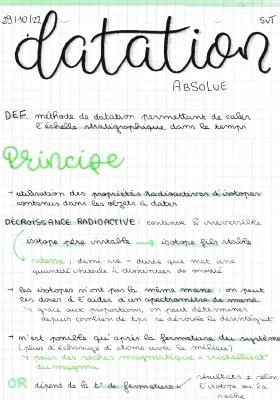 29/10/22
SVT
datation
ABSOLUE
DEF. méthode de datation permettant de caler
l'échelle stratigraphique dans le temps
Principe
→ utilisation des propriétés radioactives d'isotopes
contenus dans les objets à dater
DÉCROISSANCE RADIOACTIVE : continue & irréversible
isotope père instable → isotope fils stable
vitesse : demi-vie = durée que met une
quantité initiale à diminuer de moitié
→ les isotopes n'ont pas la même masse : on peut
les doser à l'aide d'un spectromètre de masse
↳ grâce aux proportions, on peut déterminer
depuis combien de tps se déroule la désintégrat°
→ n'est possible qu'après la fermeture du système
(plus d'échange d'atome avec le milieu)
↳ pour des roches magmatiques = cristallisat°
du magma
OR dépend de la t° de fermeture
résultats ≠ selon
l'isotope ou la
roche